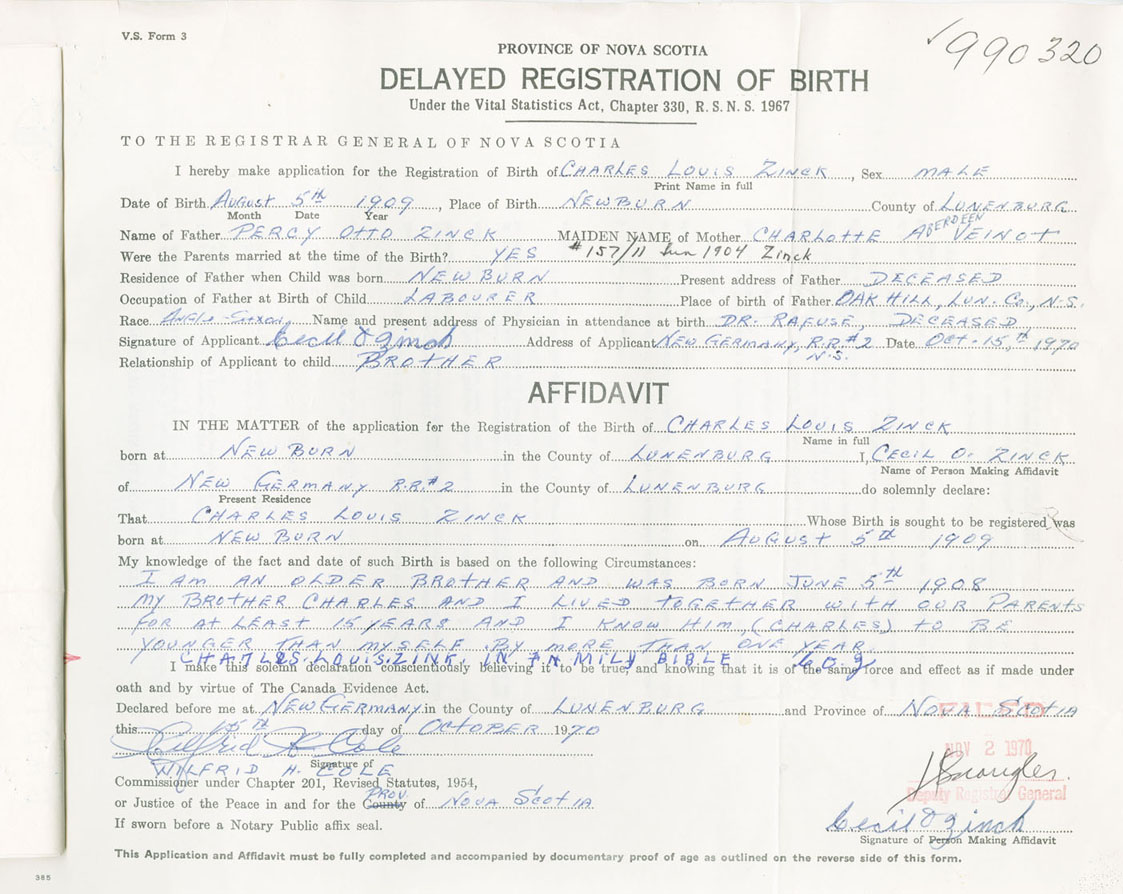 V.S. Form 3
✓990320
PROVINCE OF NOVA SCOTIA
DELAYED REGISTRATION OF BIRTH
Under the Vital Statistics Act, Chapter 330, R. S. N. S. 1967
TO THE REGISTRAR GENERAL OF NOVA SCOTIA
I hereby make application for the Registration of Birth of CHARLES LOUIS ZINCK, Sex MALE
Print Name in full
Date of Birth AUGUST 5th 1909, Place of Birth NEWBURN County of LUNENBURG
Month Date Year
ABERDEEN
Name of Father PERCY OTTO ZINCK MAIDEN NAME of Mother CHARLOTTE A VEINOT
Were the Parents married at the time of the Birth? YES #157/11 Lun 1904 Zinck
Residence of Father when Child was born NEWBURN Present address of Father DECEASED
Occupation of Father at Birth of Child LABOURER Place of birth of Father OAK HILL, LUN. CO., N.S.
Race ANGLO-SAXON Name and present address of Physician in attendance at birth DR. RAFUSE, DECEASED
Signature of Applicant Cecil O Zinck Address of Applicant NEW GERMANY, R.R.#2 Date OCT. 15,th 1970
N.S.
Relationship of Applicant to child BROTHER
AFFIDAVIT
IN THE MATTER of the application for the Registration of the Birth of CHARLES LOUIS ZINCK
Name in full
born at NEWBURN in the County of LUNENBURG I, CECIL O. ZINCK
Name of Person Making Affidavit
of NEW GERMANY R.R.#2 in the County of LUNENBURG do solemnly declare:
Present Residence
That CHARLES LOUIS ZINCK Whose Birth is sought to be registered was
born at NEWBURN on AUGUST 5th 1909
My knowledge of the fact and date of such Birth is based on the following Circumstances:
I AM AN OLDER BROTHER AND WAS BORN JUNE 5th 1908
MY BROTHER CHARLES AND I LIVED TOGETHER WITH OUR PARENTS
FOR AT LEAST 15 YEARS AND I KNOW HIM, (CHARLES) TO BE
YOUNGER THAN MYSELF BY MORE THAN ONE YEAR.
CHATLES. LOUIS. ZINK, IN FAMILY BIBLE C.O.Z
I make this solemn declaration conscientiously believing it to be true, and knowing that it is of the same force and effect as if made under
oath and by virtue of The Canada Evidence Act.
Declared before me at NEW GERMANY in the County of LUNENBURG and Province of NOVA SCOTIA
FILED
this 15th day of OCTOBER 1970
NOV 2 1970
Wilfrid H Cole
Signature of
WILFRID H. COLE
Commissioner under Chapter 201, Revised Statutes, 1954,
Deputy Registrar General
PROV.
or Justice of the Peace in and for the County of NOVA SCOTIA
Cecil O Zinck
If sworn before a Notary Public affix seal.
Signature of Person Making Affidavit
This Application and Affidavit must be fully completed and accompanied by documentary proof of age as outlined on the reverse side of this form.
385